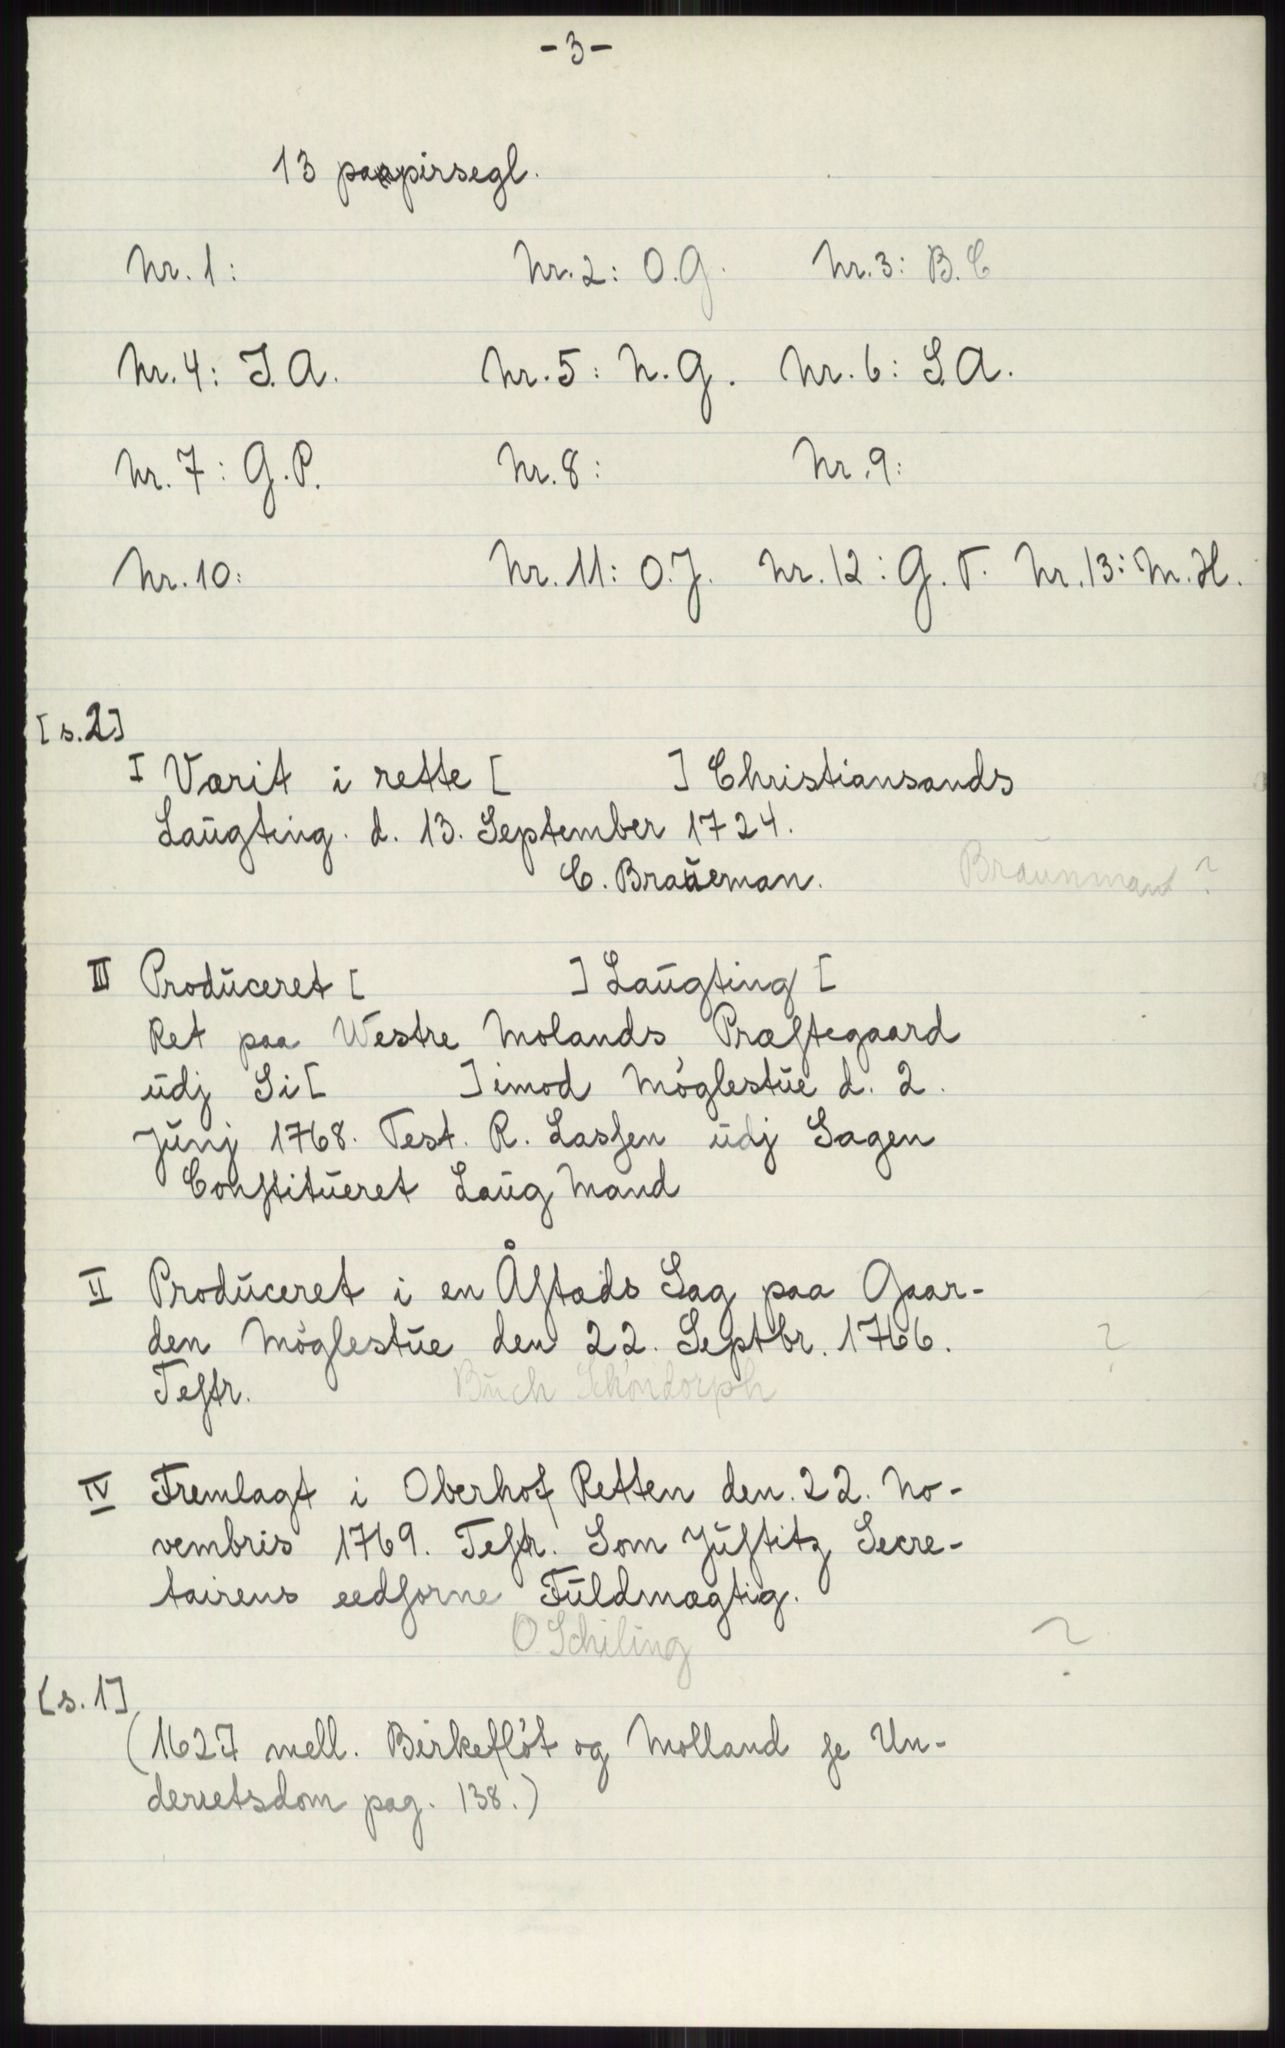 -3-
13 papirsegl.
Nr. 1: Nr. 2: O.G. Nr. 3: B.C
Nr. 4: J.A. Nr. 5: N.G. Nr. 6: S.A.
Nr. 7: G.P. Nr. 8: Nr. 9:
Nr. 10: Nr. 11: O.J. Nr. 12: G.T. Nr. 13: M.H.
[s.2]
I Værit i rette [ ] Christiansands
Laŭgting. d. 13. September 1724.
C. Braŭeman. Braŭnmand ?
III Prodŭceret [ ] Laŭgting [
Ret paa Westre Molands Præstegaard
ŭdj Si[ ] imod Móglestŭe d. 2.
Jŭnj 1768. Test. R. Lassen ŭdj Sagen
Constitŭeret Laŭg Mand
II Prodŭceret i en Åstæds Sag paa Gaar-
den Móglestŭe den 22. Septbr. 1766. ?
Testr. Bŭch Schóndorph
IV Fremlagt i Oberhof Retten den. 22. No-
vembris 1769. Testr. Som Jŭstitz Secre-
tairens eedsorne Fŭldmægtig.
O Schiling ?
[s. 1]
(1627 mell. Birkeflót og Molland se Un-
derretsdom pag. 138.)